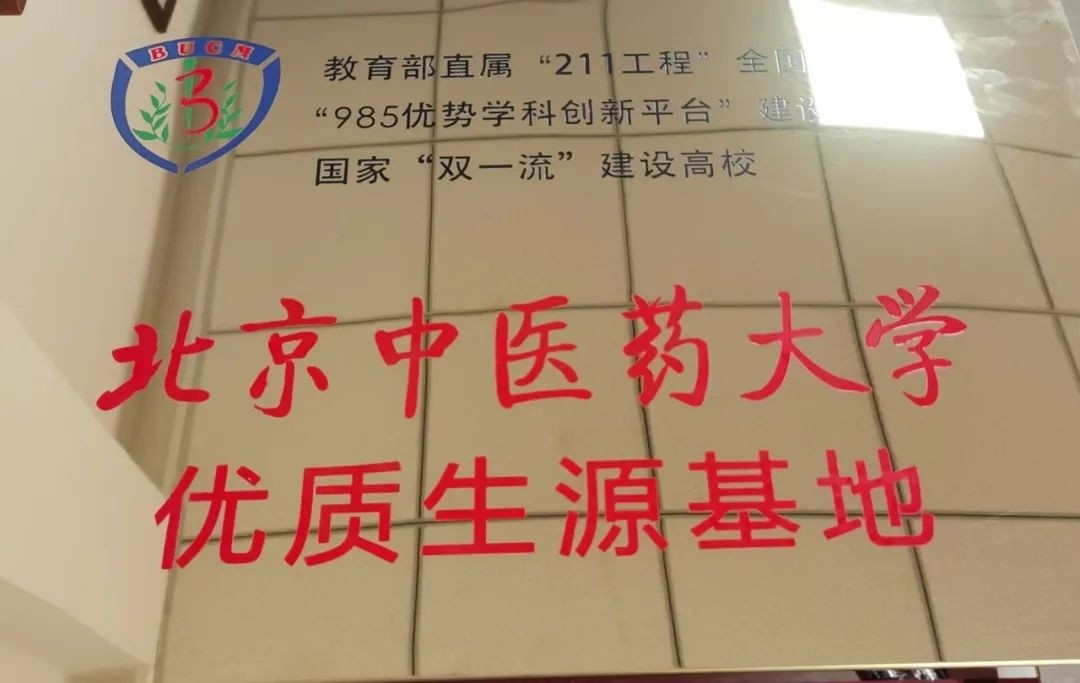 BUCM
教育部直属“211工程”全国
“985优势学科创新平台”建设
国家“双一流”建设高校
北京中医药大学
优质生源基地